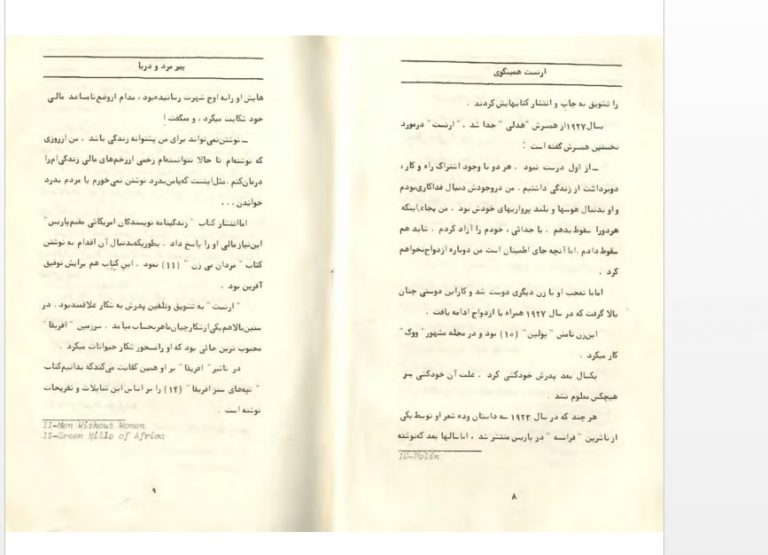 ارنست همینگوی
را تشویق به چاپ و انتشار کتابهایش کردند .
بسال ۱۹۲۷ از همسرش "هدلی" جدا شد . "ارنست" درمورد
نخستین همسرش گفته است :
ــ از اول درست نبود . هر دو با وجود اشتراک راه و کار ،
دوبرداشت از زندگی داشتیم . من دروجودش دنبال فداکاری‌بودم
و او بدنبال هوسها و بلند پروازیهای خودش بود . من بجای‌اینکه
هردورا سقوط بدهم . با جدائی ، خودم را آزاد کردم . شاید هم
سقوط دادم . اما آنچه جای اطمینان است من دوباره ازدواج‌نخواهم
کرد .
امابا تعجب او با زن دیگری دوست شد و کاراین دوستی چنان
بالا گرفت که در سال ۱۹۲۷ همراه با ازدواج ادامه یافت .
این‌زن نامش "پولین" (۱۰) بود و در مجله مشهور "ووک"
کار میکرد .
یکسال بعد پدرش خودکشی کرد . علت آن خودکشی بر
هیچکس معلوم نشد .
هر چند که در سال ۱۹۲۳ سه داستان وده شعر او توسط یکی
از ناشرین "فرانسه" در پاریس منتشر شد ، اماسالها بعد که‌نوشته
10-Polin
۸
پیر مرد و دریا
هایش او رابه اوج شهرت رسانیده‌بود ، مدام ازوضع‌نامساعد مالی
خود شکایت میکرد ، و میگفت !
ــ نوشتن‌نمی‌تواند برای من پشتوانه زندگی باشد . من ازروزی
که نوشته‌ام تا حالا نتوانسته‌ام زخمی اززخم‌های مالی زندگی‌ام‌را
درمان‌کنم .مثل‌اینست که‌یامن‌بدرد نوشتن نمی‌خورم یا مردم بدرد
خواندن . . .
اماانتشار کتاب "زندگینامه نویسندگان امریکائی مقیم‌پاریس"
این‌نیازمالی او را پاسخ داد . بطوریکه‌بدنبال آن اقدام به نوشتن
کتاب "مردان بی زن" (۱۱) نمود . این کتاب هم برایش توفیق
آفرین بود .
"ارنست" به تشویق وتلقین پدرش به شکار علاقمندبود . در
سنین‌بالاهم‌یکی‌ازشکارچیان‌ماهربحساب میآمد . سرزمین "افریقا"
محبوب ترین جائی بود که او رامسحور شکار حیوانات میکرد .
در تاثیر "افریقا" بر او همین کفایت می‌کندکه بدانیم‌کتاب
"تپه‌های سبز افریقا" (۱۲) را بر اساس این تمایلات و تفریحات
نوشته است .
11-Men Without Women
12-Green Hills of Africa
۹